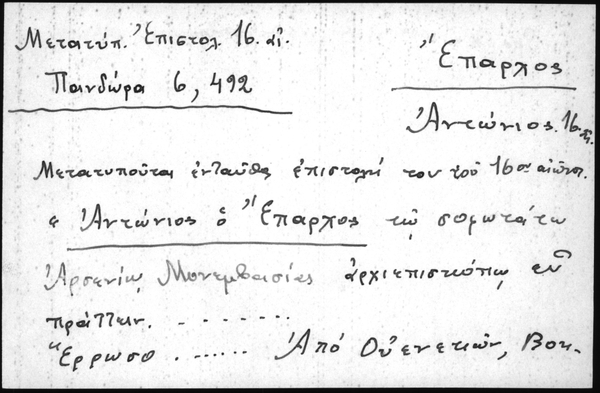 Μετατύπ. Ἐπιστολ. 16. αἰ.
Πανδώρα 6, 492
Ἔπαρχος
Ἀντώνιος. 16. αἰ.
Μετατυποῦται ἐνταῦθα ἐπιστολή του τοῦ 16ου αἰῶνος.
« Ἀντώνιος ὁ Ἔπαρχος τῷ σοφωτάτω
Ἀρσενίῳ Μονεμβασίας ἀρχιεπισκόπῳ εὖ
πράττειν. . . . . . . . .
Ἔρρωσο . . . . . . . Ἀπό Οὐενετιῶν, Βοη-